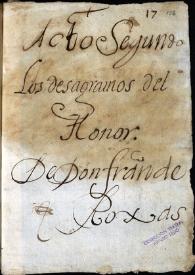 17
Acto Segundo
Los desagravios del
Honor.
De Don fran de
Roxas